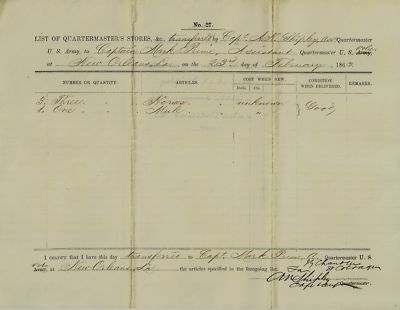 No. 27.
LIST OF QUARTERMASTER'S STORES, &c., transferred by Capt. A. N. Shipley, Ass't Quartermaster
U. S. Army, to Captain Mark Prine, Assistant Quartermaster U. S. Vols.
at New Orleans, La on the 23rd day of February 1863.
NUMBER OR QUANTITY. ARTICLES. COST WHEN NEW. CONDITION WHEN DELIVERED. REMARKS.
Dolls. Cts.
3, Three Horses unknown Good
1, One Mule " "
I CERTIFY that I have this day transferred to Capt. Mark Prine, A. Quartermaster U. S.
Vols Army, at New Orleans La the articles specified in the foregoing list.
A N Shipley
Capt Quartermaster.